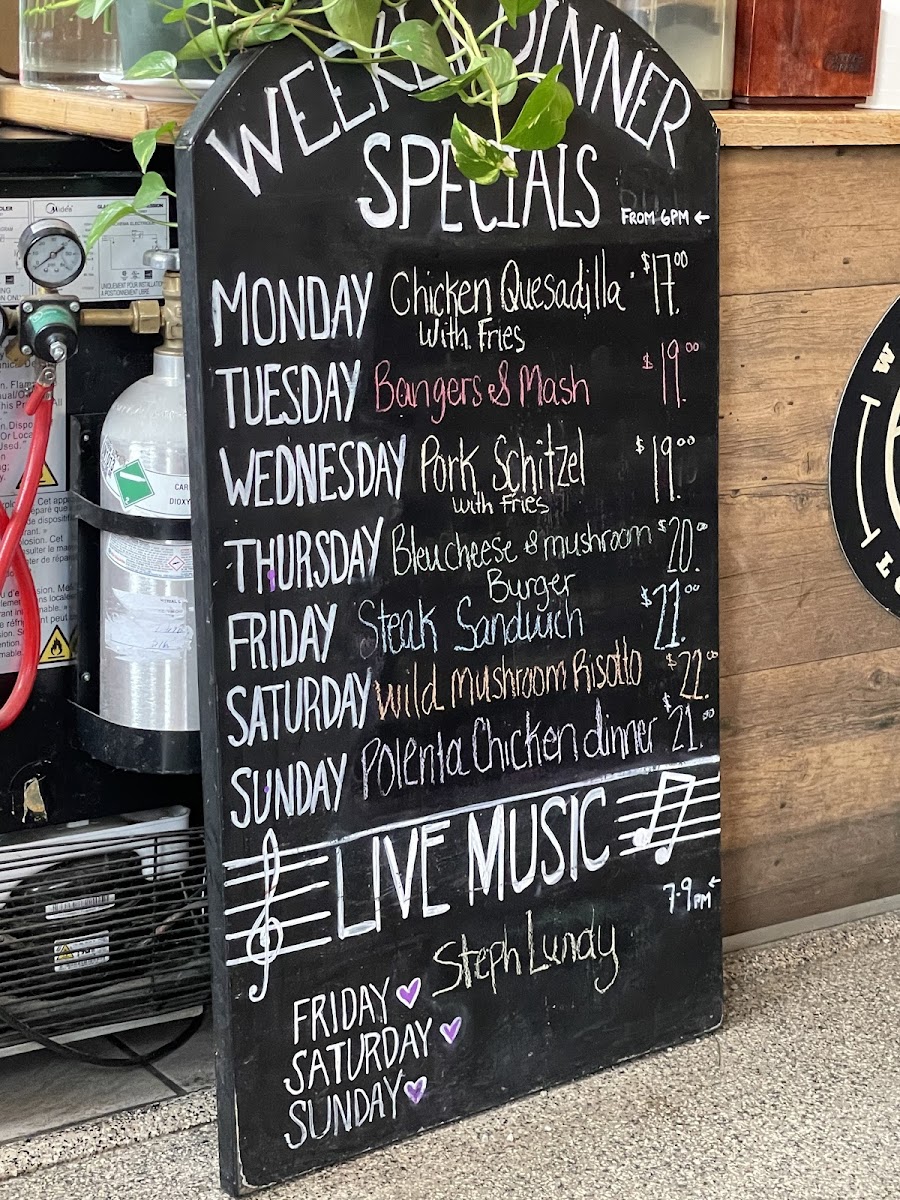 WEEKLY DINNER
SPECIALS
FROM 6PM ←
MONDAY Chicken Quesadilla $17.00
With Fries
TUESDAY Bangers & Mash $19.00
WEDNESDAY Pork Schitzel $19.00
with fries
THURSDAY Bleucheese & mushroom $20.00
Burger
FRIDAY Steak Sandwich $21.00
SATURDAY wild mushroom Risotto $22.00
SUNDAY Polenta Chicken dinner $21.00
LIVE MUSIC
7-9PM ←
Steph Lundy
FRIDAY
SATURDAY
SUNDAY